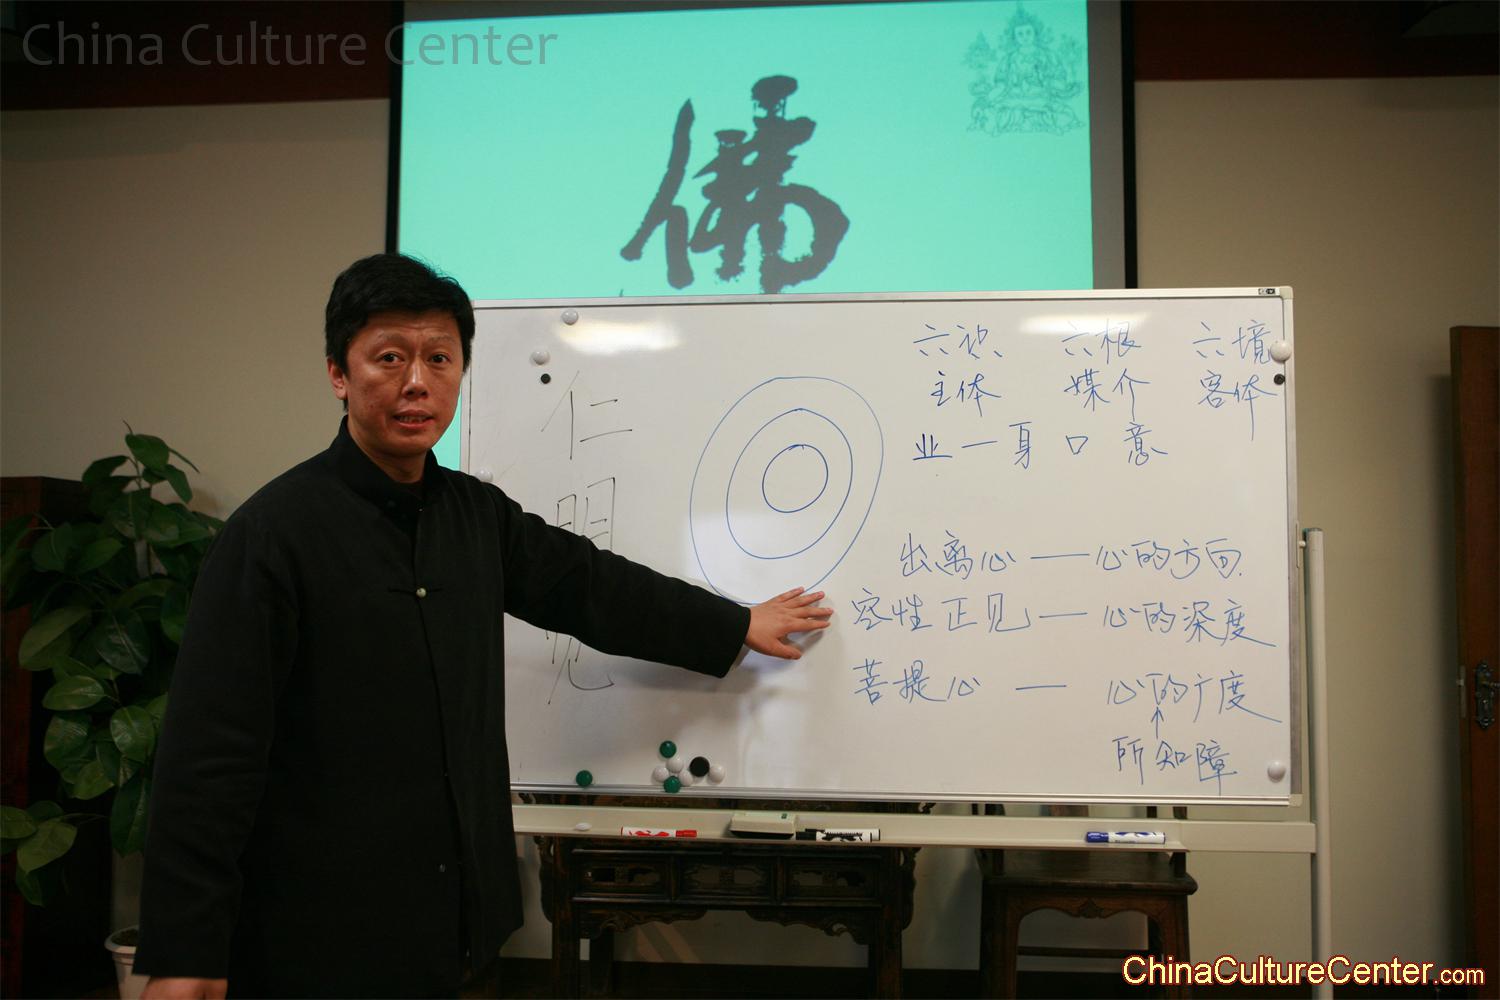 China Culture Center
佛
六识 六根 六境
主体 媒介 客体
业一身 口 意
仁
明
出离心——心的方向
空性正见——心的深度
菩提心 — 心的广度
↑
所知障
ChinaCultureCenter.com